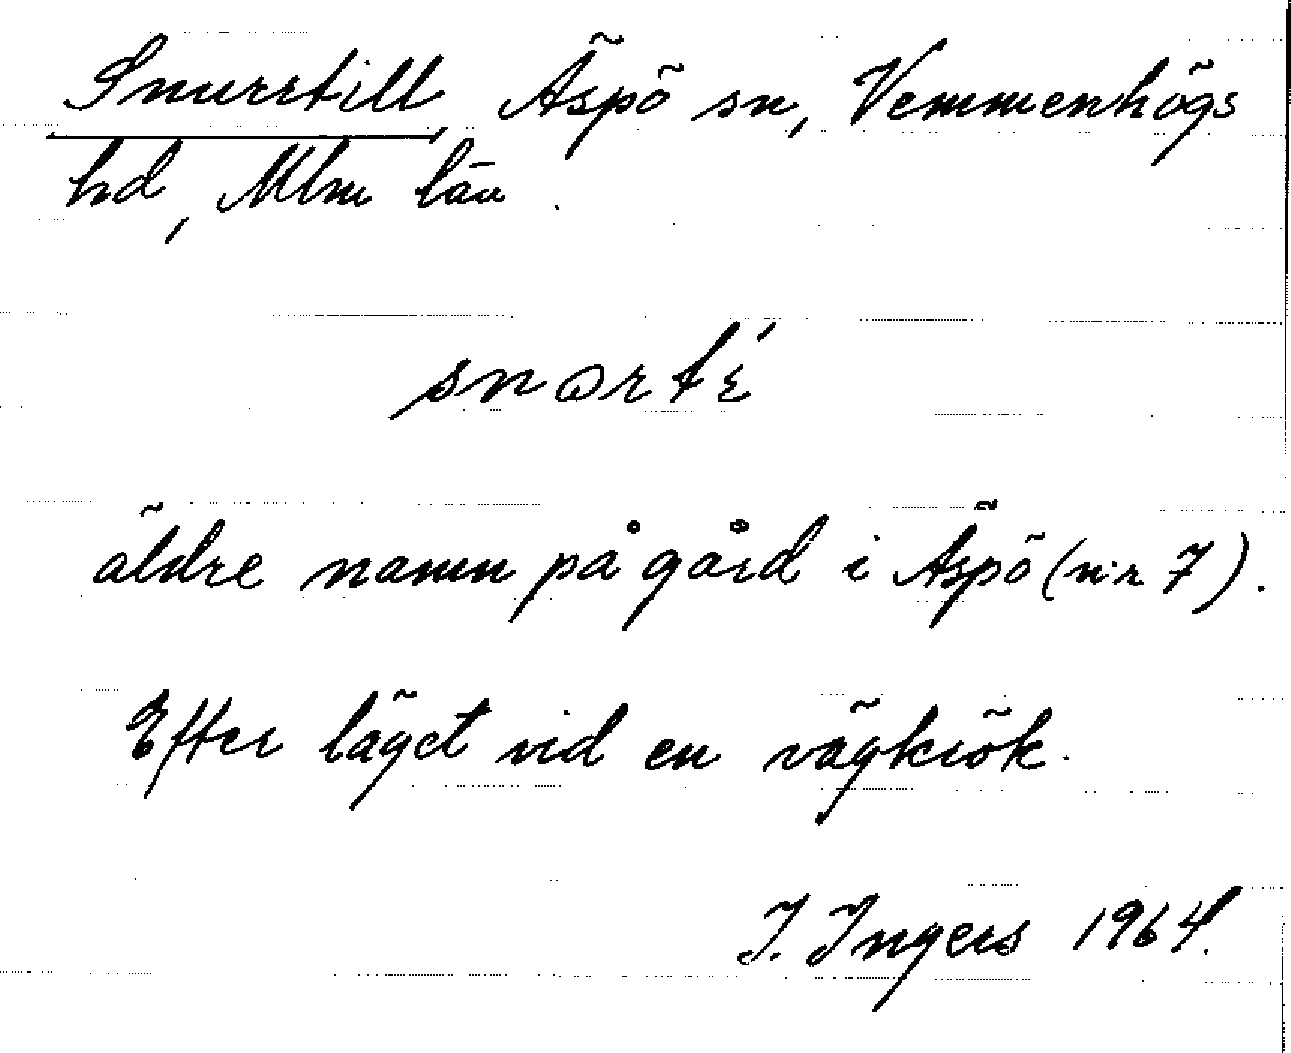 Snurrtill, Äspö sn, Vemmenhögs
hd, Mlm län.
snørtɛ́
äldre namn på gård i Äspö (n:r 7).
Efter läget vid en vägkrök.
I. Ingers 1964.